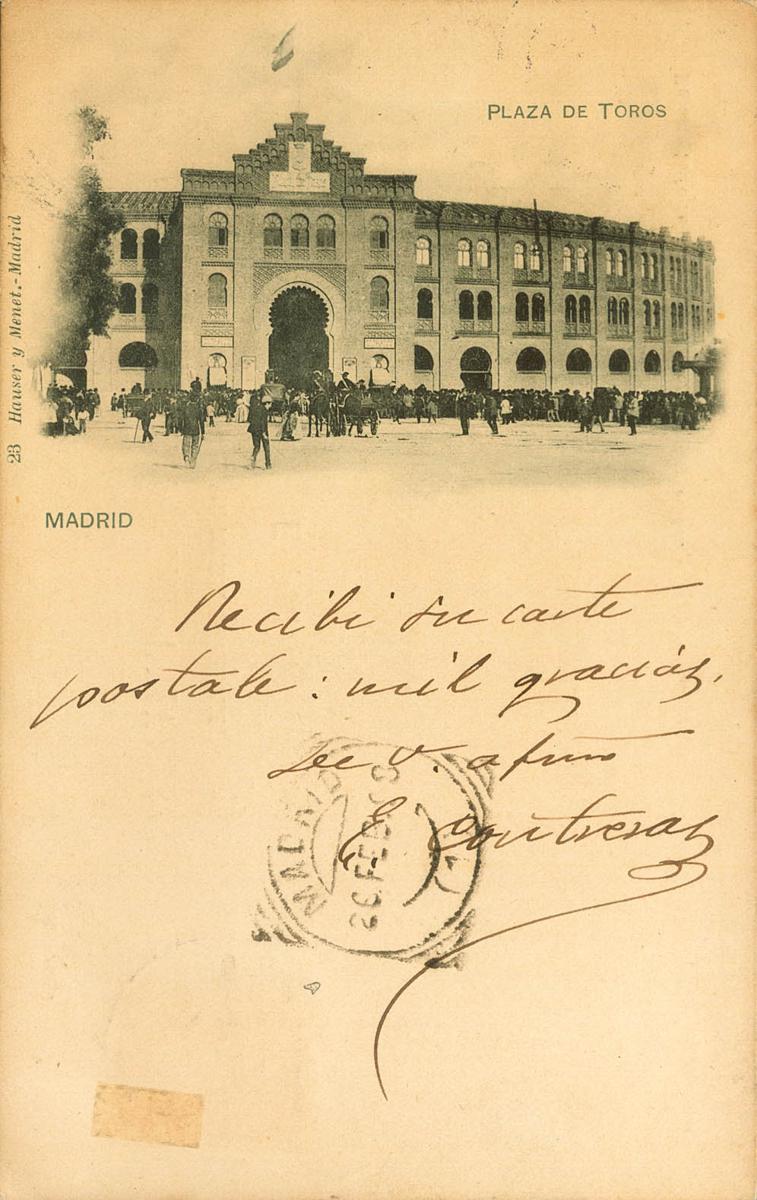 PLAZA DE TOROS
23 Hauser y Menet.-Madrid
MADRID
Recibi su carte
postale: mil gracias,
V. afmo
E. Contreras
MADRID
26 FEB